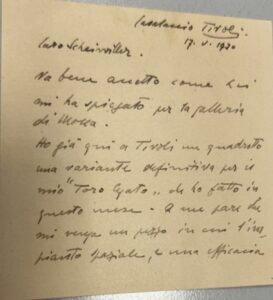 Tivoli
17. V. 1970
Caro Scheiwiller.
Va bene anche come Lei
mi ha spiegato per la galleria
di Mosca.
Ho già qui a Tivoli un quadretto
una variante definitiva per il
mio "Toro che ho fatto in
questo mese - A me pare che
mi venga un pezzo in cui l'im
pianto spaziale, e una efficacia